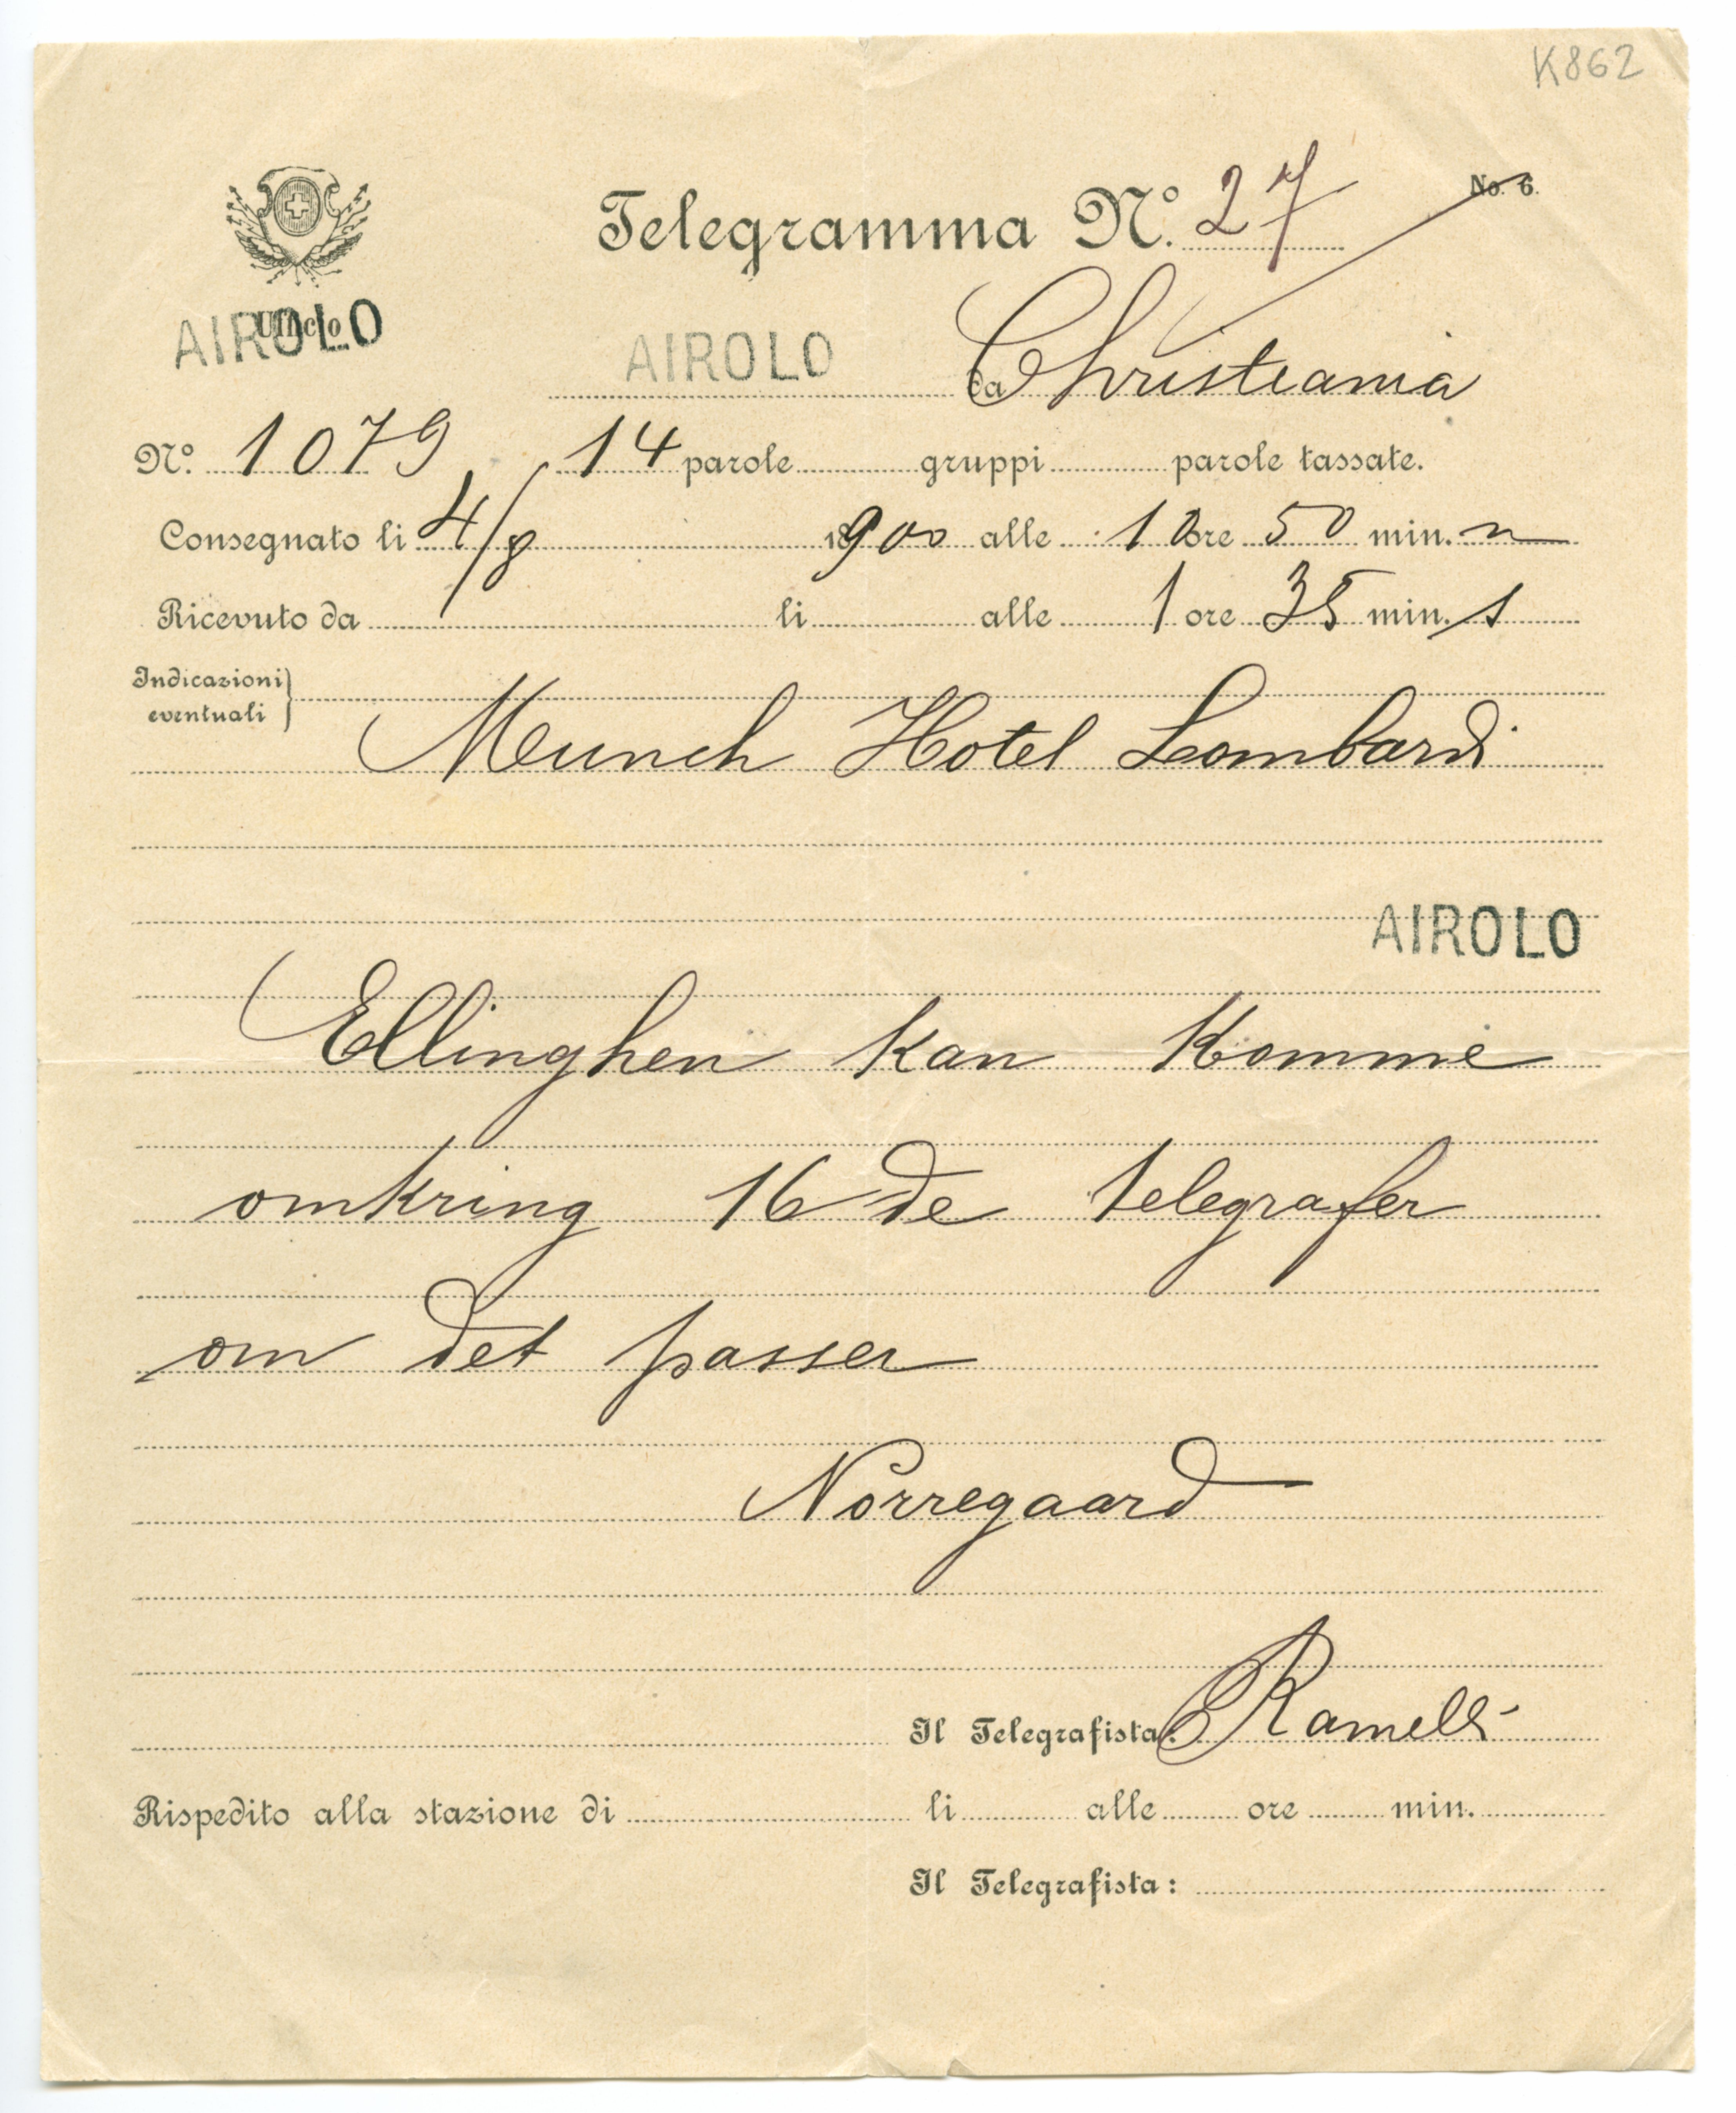 K862
Telegramma No. 27
No. 6.
Ufficio
AIROLO
AIROLO da Christiania
No. 1079 14 parole gruppi parole tassate.
Consegnato li 4/8 1900 alle 10 ore 50 min. n
Ricevuto da li alle 1 ore 35 min. s
Indicazioni
eventuali
Munch Hotel Lombardi
AIROLO
Ellinghen kan komme
omkring 16 de telegrafer
om det passer
Nörregaard
Il Telegrafista: Ramelli
Rispedito alla stazione di li alle ore min.
Il Telegrafista: